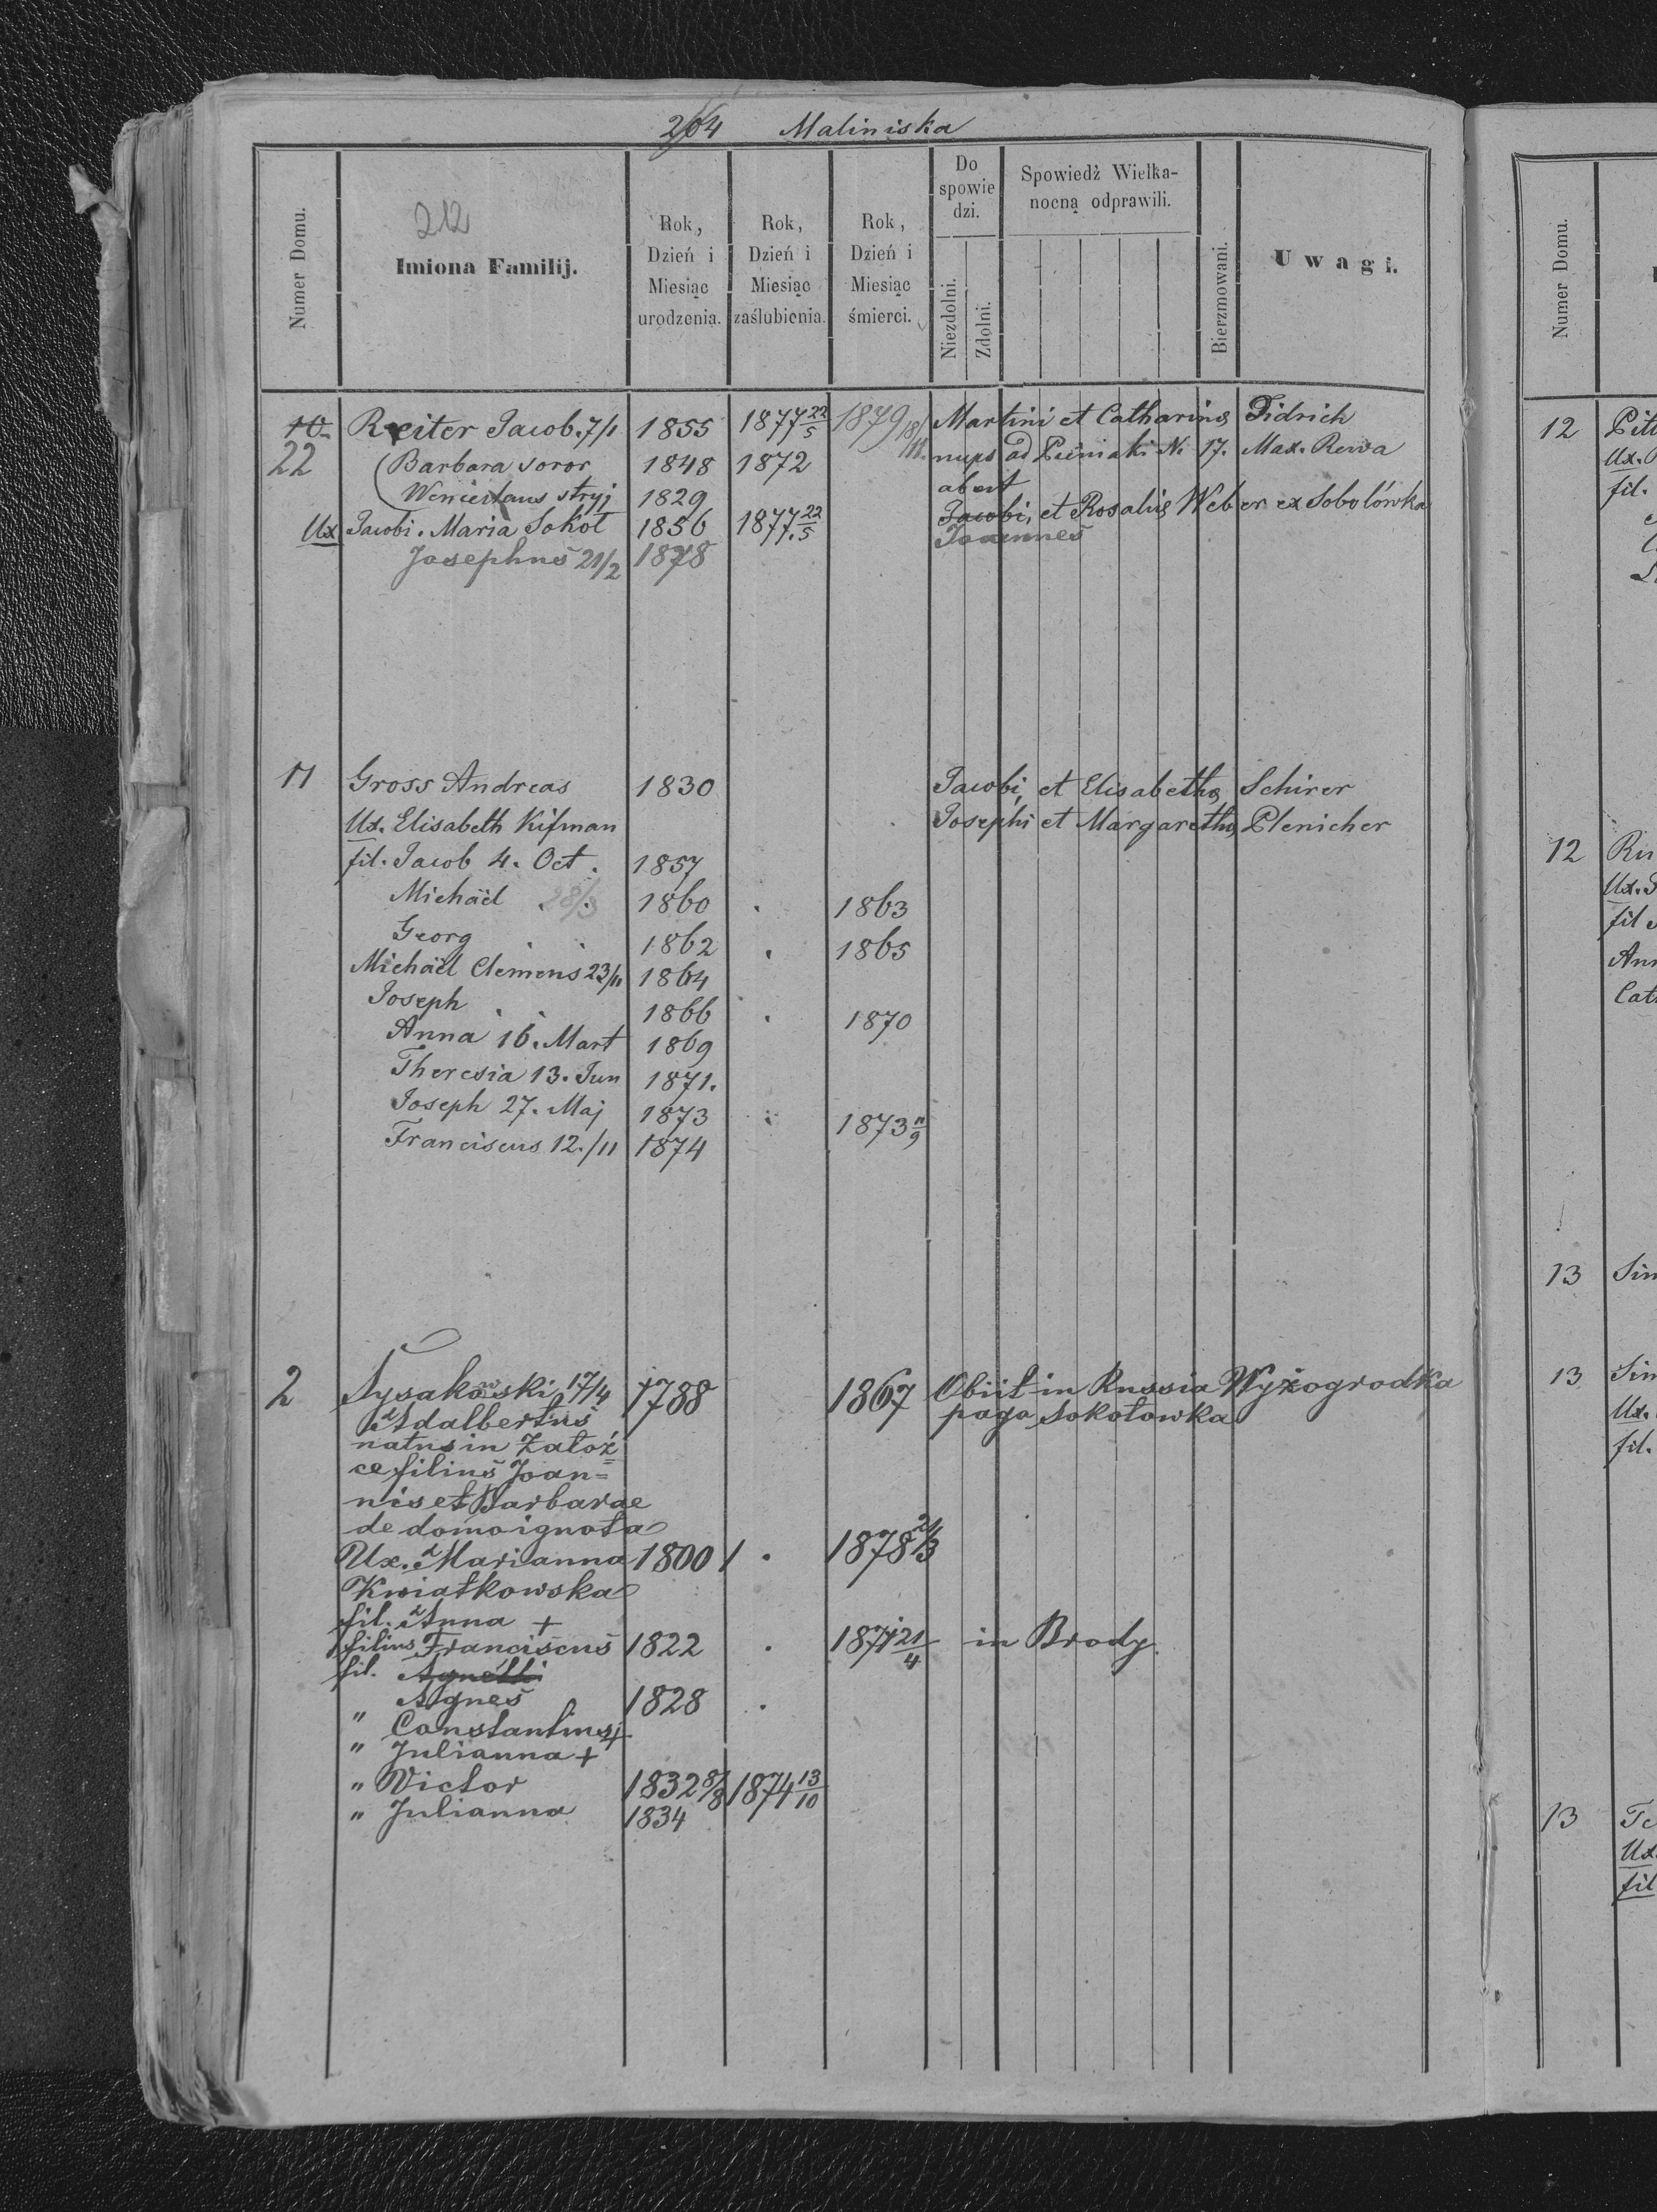 204 Maliniska
212
Numer Domu.
Imiona Familij.
Rok, Dzień i Miesiąc urodzenia.
Rok, Dzień i Miesiąc zaślubienia.
Rok, Dzień i Miesiąc śmierci.
Do spowie dzi.
Niezdolni.
Zdolni.
Spowiedź Wielka-
nocną odprawili.
Bierzmowani.
Uwagi.
10 Reiter Jacob. 7/1 1855 1877 22/5 1879 18/11. Martini et Catharinę Didrich
22 Barbara soror 1848 1872 nups ad Pieniaki N. 17. Max. Rewa
Wenceslaus stryj 1829 abest
Ux Jacobi. Maria Sokoł 1856 1877. 22/5 Jacobi, et Rosalię Weber ex Sobolówka
Joannes
Josephus 21/2 1878
11 Gross Andreas 1830 Jacobi, et Elisabethę Schirer
Ux. Elisabeth Kifman Josephi et Margarethę Plenicher
fil. Jacob 4. Oct. 1857
Michäel 28/3 1860 1863
Georg 1862 1865
Michäel Clemens 23/11 1864
Joseph 1866 1870
Anna 16. Mart 1869
Theresia 13. Jun 1871.
Joseph 27. Maj 1873 1873 11/9
Franciscus 12./11 1874
2 Łysakowski 17/4 1788 1867 Obiit in Russia Wyżogrodka
Adalbertus pago Sokołowka
natus in Załoź=
ce filius Joan=
nis et Barbarae
de domo ignota
Ux. Marianna 1800 1878 21/3
Kwiatkowska
fil. Anna +
filius Franciscus 1822 1871 21/4 in Brody.
fil. Agnelli
" Agnes 1828
" Constantinus +
" Julianna +
" Victor 1832 8/8 1874 13/10
" Julianna 1834
Numer Domu.
12
Ux.
fil.
12
Ux.
fil
13
13
Ux.
fil.
13
Ux.
fil